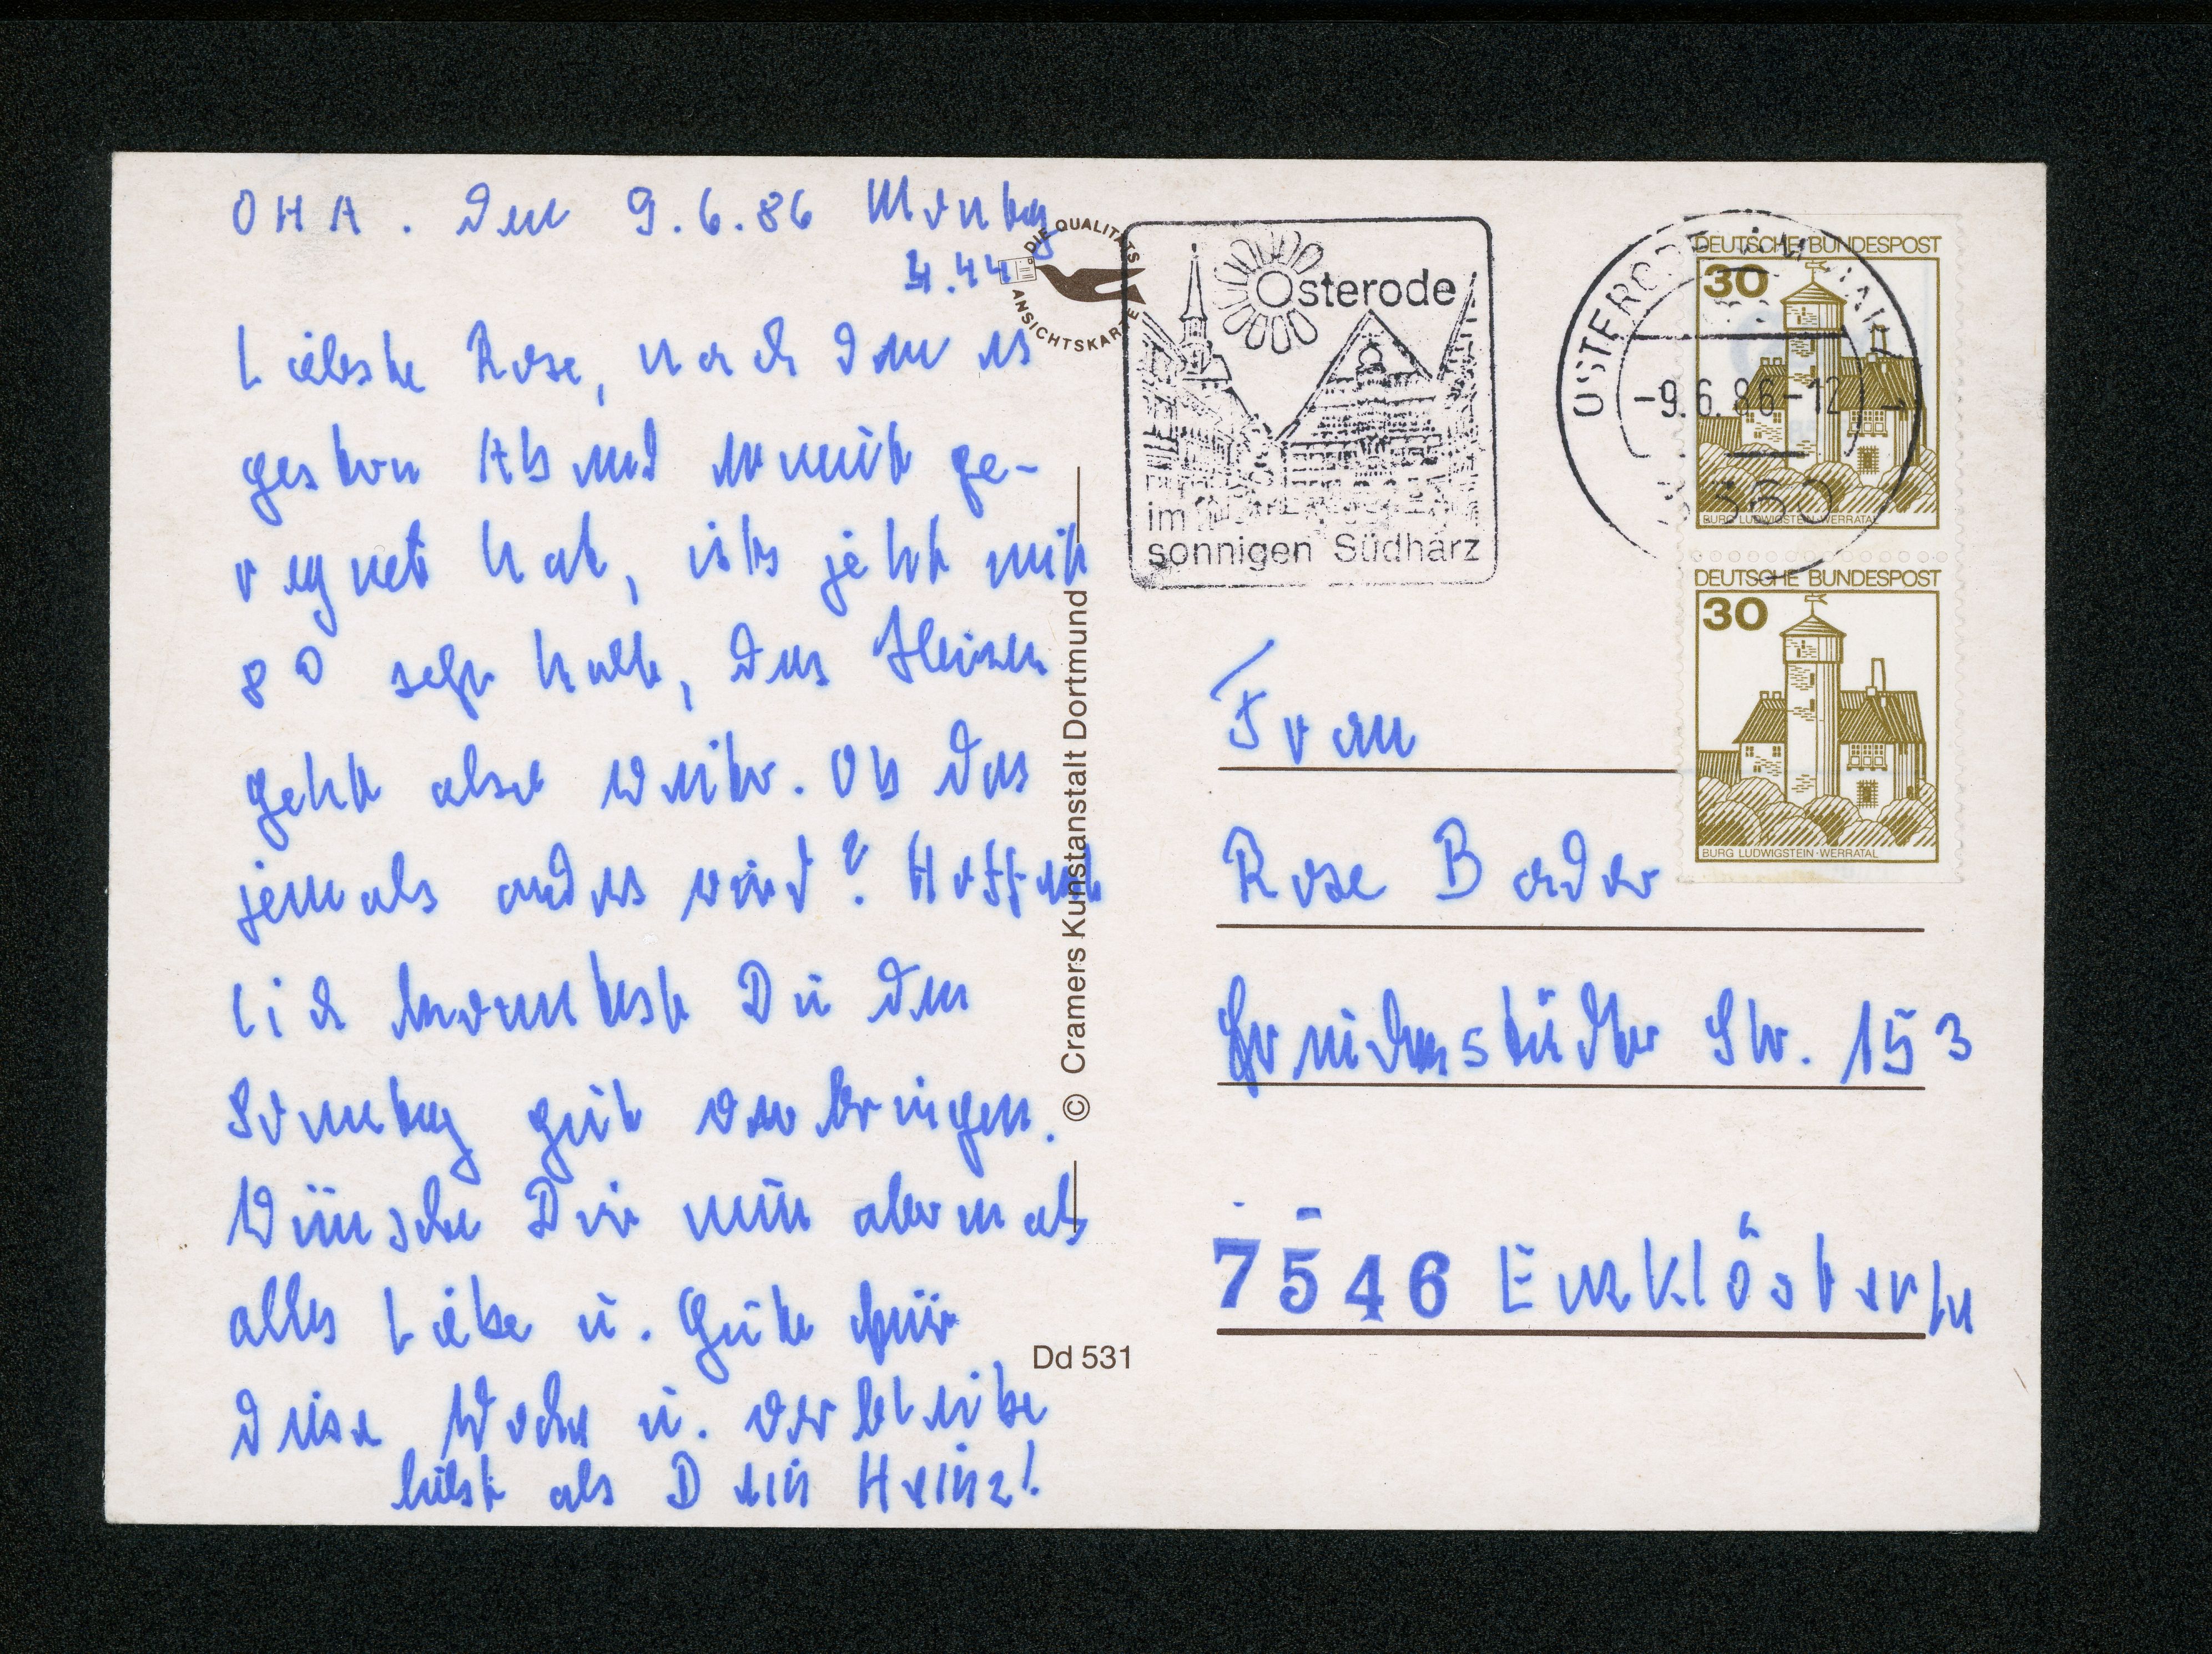 OHA. den 9.6.86 Montag
4.44
DIE QUALITÄTS
ANSICHTSKARTE
Liebste Rose, nach dem es
gestern Abend erneut ge-
regnet hat, ists jetzt mit
8° sehr kalt, das Heizen
geht also weiter. Ob das
jemals anders wird? Hoffent
lich konntest Du den
Sonntag gut verbringen.
Wünsche Dir nun abermals
alles Liebe u. Gute für
diese Woche u. verbleibe
als Dein Heinz!
© Cramers Kunstanstalt Dortmund
Dd 531
Osterode
im
sonnigen Südharz
OSTERODE AM HARZ
-9.6.86-12
3360
DEUTSCHE BUNDESPOST
30
BURG LUDWIGSTEIN·WERRATAL
DEUTSCHE BUNDESPOST
30
BURG LUDWIGSTEIN·WERRATAL
Frau
Rose Bader
Freudenstädter Str. 153
7546 Enzklösterle